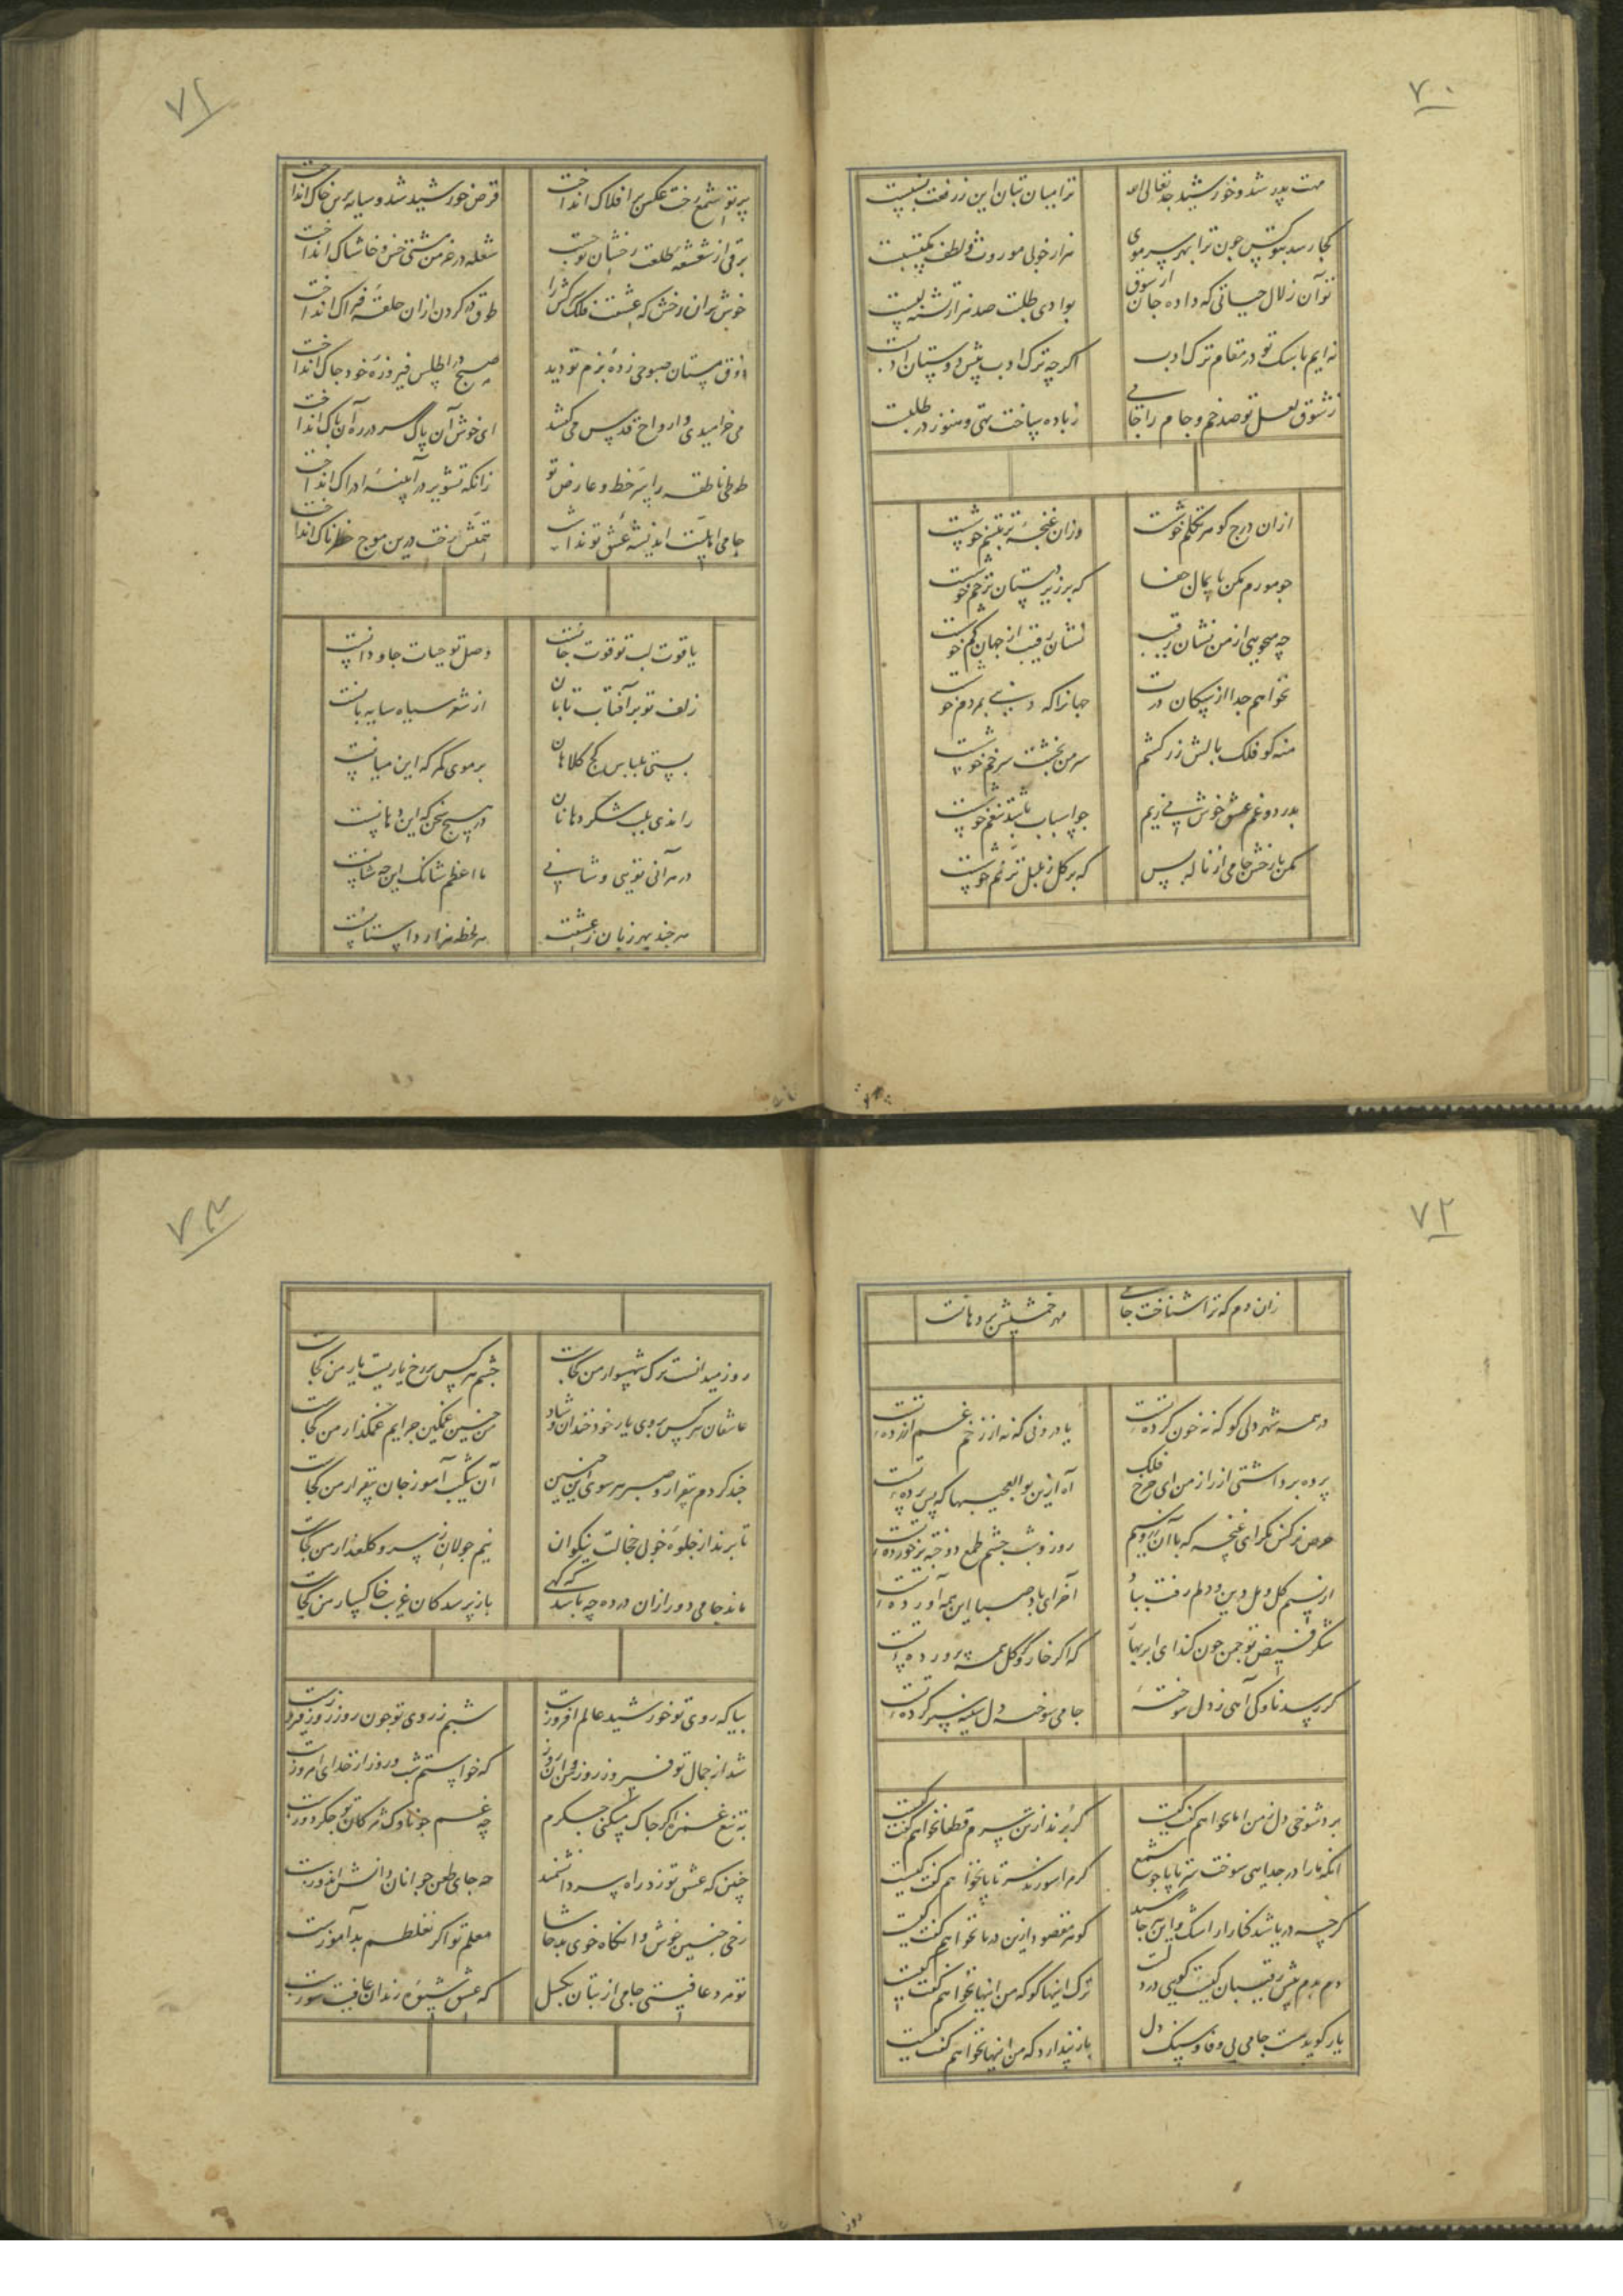 ۷۰
مهت پدر شد و خورشید جد تعالی الله
ترا میان بتان این زر فعت نسبیست
کجا رسد بتو کس چون ترا بهر سر موی
هزار خوبی موروث و لطف مکتسبیست
تو آن زلال حیاتی که داده جان از شوق
بوادی طلبت صد هزار تشنه لبیست
نه ایم با سک تو در مقام ترک ادب
اکر چه ترک ادب پیش دوستان ادبیست
ز شوق لعل تو صد خم و جام را جامی
ز باده ساخت تهی و هنوز در طلبست
ازان درج کوهر تکلم خوشست
وزان غنچهٔ تر تبسم خوشست
چو مورم مکن پایمال جفا
که بر زیردستان ترحم خوشست
چه میجویی از من نشان رقیب
نشان رقیب از جهان کم خوشست
نخواهم جدا از سکان درت
جهانرا که دیدن بمردم خوشست
منه کو فلک بالش زر کشم
سر من بخشت سر خم خوشست
بدرد و غم عشق خوش می زیم
چو اسباب باشد تنعم خوشست
مکن یار خش جامی از ناله بس
که بر کل ز بلبل ترنم خوشست
۷۱
پرتو شمع رخت عکس بر افلاک انداخت
قرص خورشید شد و سایه برین خاک انداخت
برقی از شعشعهٔ طلعت رخشان تو جست
شعله در خرمن مشتی خس و خاشاک انداخت
خوش بران رخش که عشقت فلک سرکش را
طوق در کردن ازان حلقهٔ فتراک انداخت
ذوق مستان صبوحی زدهٔ بزم تو دید
صبح در اطلس فیروزهٔ خود چاک انداخت
می خرامیدی و ارواح قدس می کفتند
ای خوش آن پاک که سر در ره آن پاک انداخت
طوطی ناطقه را سر خط و عارض تو
زانکه تشویر در آیینهٔ ادراک انداخت
جامی اهلیت اندیشهٔ عشق تو نداشت
همتش رخت درین موج خطرناک انداخت
یاقوت لب تو قوت جانست
وصل تو حیات جاودانست
زلف تو بر آفتاب تابان
از شعر سیاه سایه بانست
بستی بلباس کج کلاهان
بر موی کمر که این میانست
راندی بلب شکر دهانان
در هیچ سخن که این دهانست
در هر آنی تویی و شانی
ما اعظم شانک این چه شانست
هر چند بهر زبان ز عشقت
هر لحظه هزار داستانست
۷۲
زان دم که ترا شناخت جامی
مهر خمشیش بر دهانست
در همه شهر دلی کو که نه خون کردهٔ تست
یا درونی که نه از زخم غم آزردهٔ تست
پرده برداشتی از راز من ای چرخ فلک
آه ازین بوالعجبیها که پس پردهٔ تست
عرض نرکس مکن ای غنچه که با آن رو نسیم
روز و شب چشم طمع دوخته بر خوردهٔ تست
از نسیم کل و مل دین و دلم رفت بباد
آخر ای باد صبا این همه آوردهٔ تست
شکر فیض تو چمن چون کند ای ابر بهار
که اکر خار و کر کل همه پروردهٔ تست
کر رسد ناوک آهی ز دل سوختهٔ
جامی سوخته دل سینه سپر کردهٔ تست
برد شوخی دل ز من اما نخواهم کفت کیست
کر برند از تن سرم قطعا نخواهم کفت کیست
انکه ما را در جدایی سوخت سر تا پا چو شمع
کر مرا سوزند سر تا پا نخواهم کفت کیست
کرچه دریا شد کنار از اشک و این جا رسید
کوهر مقصود ازین دریا نخواهم کفت کیست
دم بدم پیش رقیبان کیست کویی در دلت
ترک اینها کو که من اینها نخواهم کفت کیست
یار کوید هست جامی بی وفا و سنک دل
باز پندارد که من اینها نخواهم کفت کیست
روز
۷۳
روز میدانست ترک شهسوار من کجاست
چشم هر کس بر رخ یاریست یار من کجاست
عاشقان هر کس بروی یار خود خندان و شاد
من چنین غمکین چرایم غمکسار من کجاست
چند کردم بیقرار و صبر هر سوی این چنین
آن شکیب آموز جان بیقرار من کجاست
تا برند از جلوهٔ خوبی خجالت نیکوان
نیم جولان ز سرو کلعذار من کجاست
ماند جامی دور ازان در ده چه باشد که کهی
باز پرسد کان غریب خاکسار من کجاست
بیا که روی تو خورشید عالم افروزست
شبم ز روی تو چون روز روز فیروزست
شد از جمال تو فیروز روز من آن روز
که خواستم شب و روز از خدای امروزست
به تیغ غمزه اکر چاک میکنی جکرم
چه غم چو ناوک مژکان تو جکر دوزست
چنین که عشق تو زد راه پیر دانشمند
چه جای طعن جوانان دانش اندوزست
رخی چنین خوش و انکاه خوی بد حاشا
معلم تو اکر نغلطم بد آموزست
تو مرد عافیتی جامی از بتان بکسل
که عشق شیوهٔ رندان عافیت سوزست